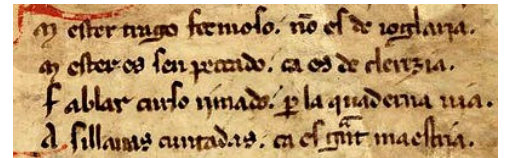 M ester trago fermoso. nō es de ioglaria.
M ester es sen peccado. ca es de clerizia.
F ablar curso rimado. ꝑ la quaderna uia.
A sillauas cuntadas. ca es gᵃnt maestria.